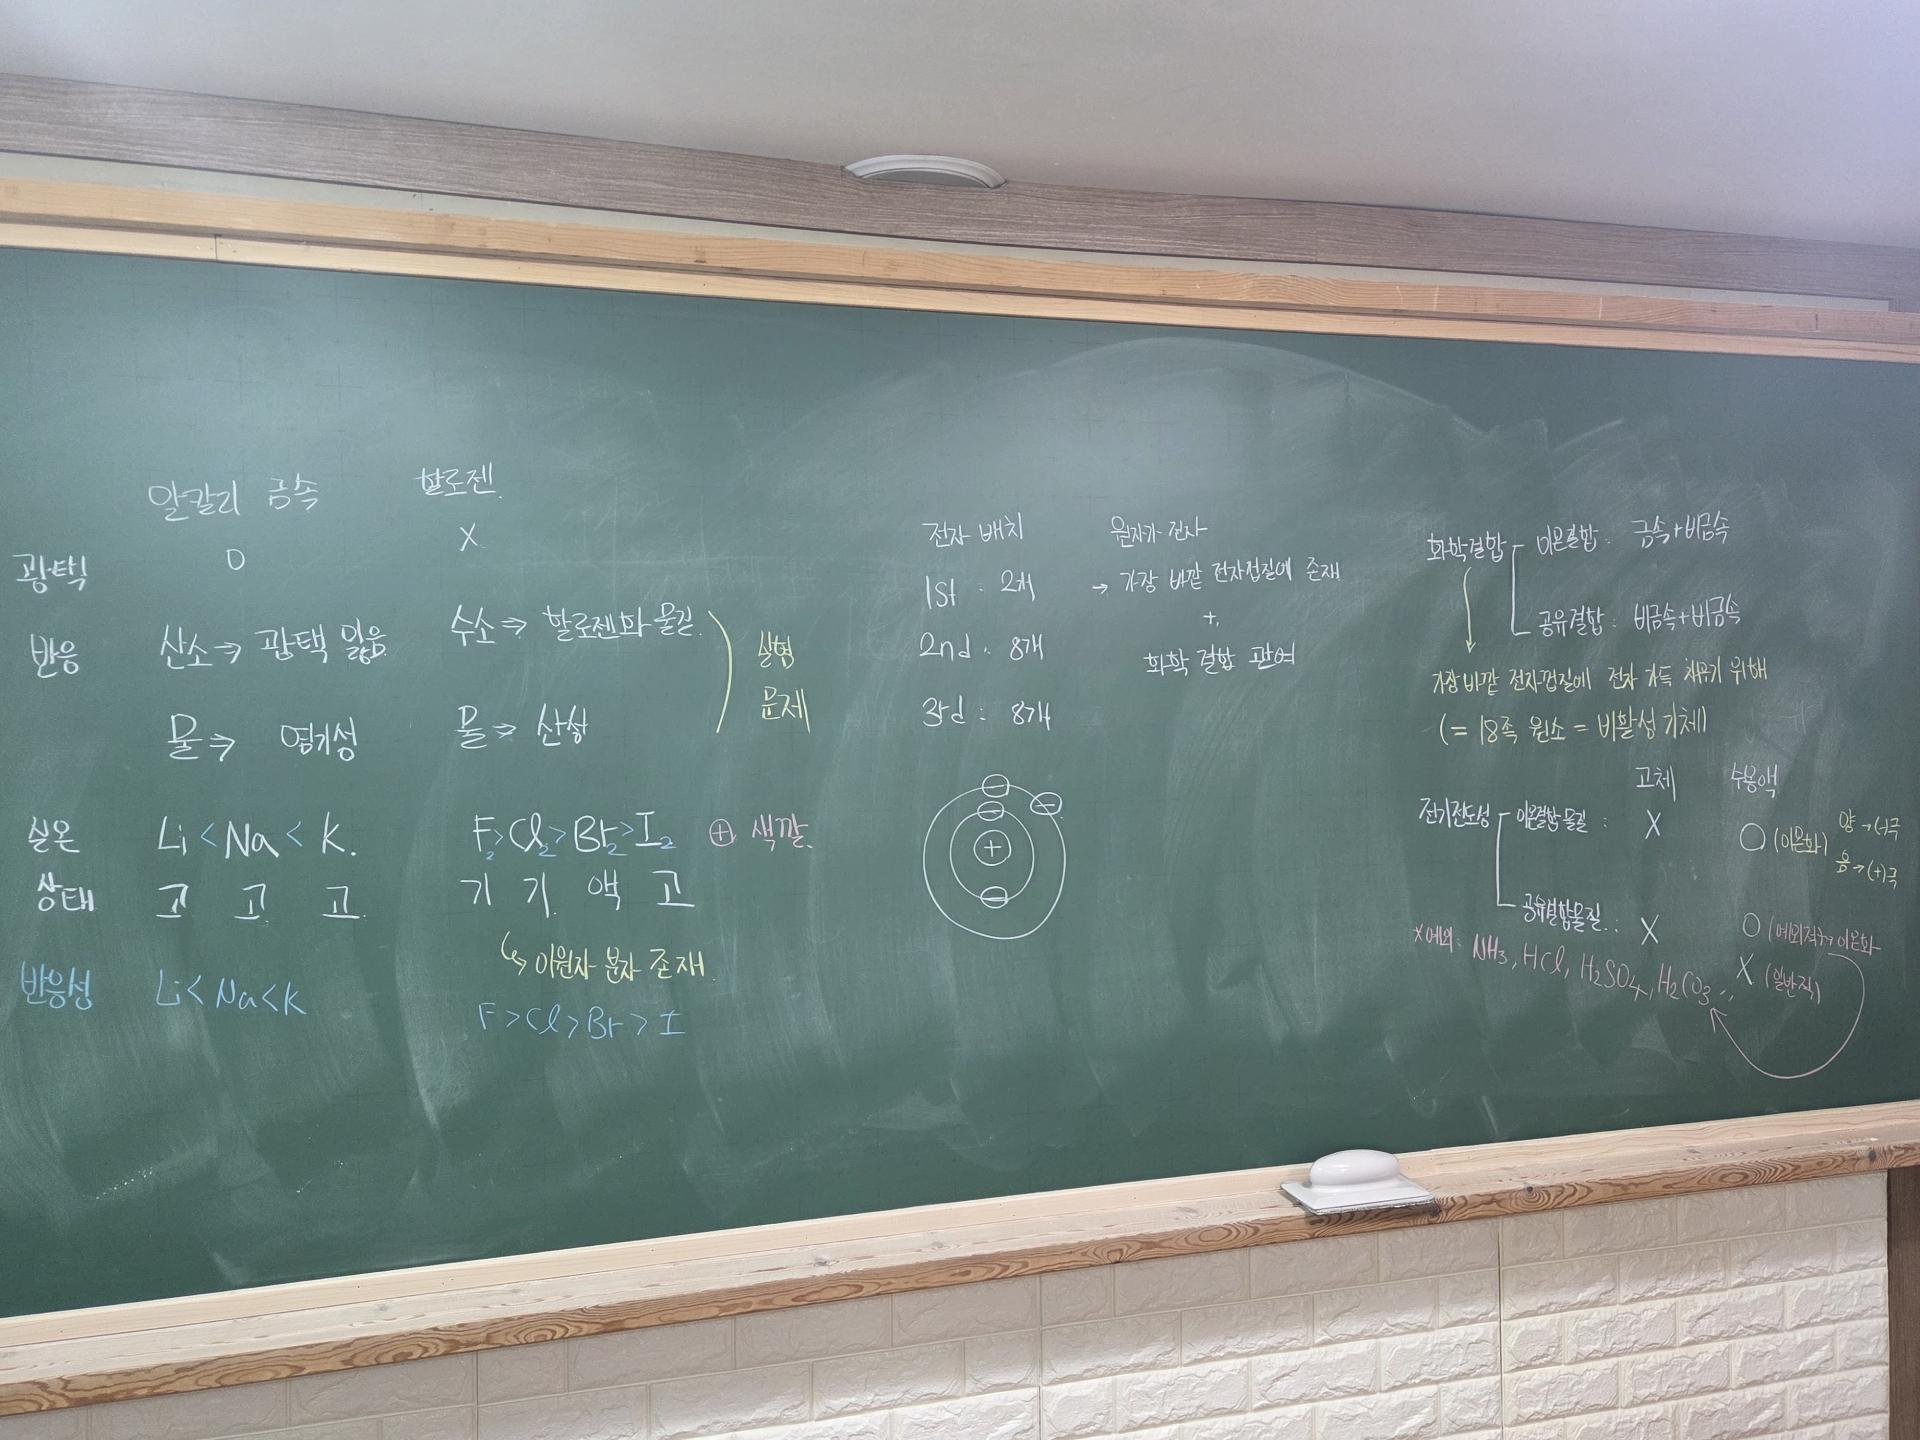 알칼리 금속 할로젠.
광택 O X
반응 산소 ⇒ 광택 잃음. 수소 ⇒ 할로젠화 물질.
물 ⇒ 염기성 물 ⇒ 산성
실험
문제
실온 Li < Na < K. F₂ > Cl₂ > Br₂ > I₂ ⊕ 색깔.
상태 고 고 고. 기 기 액 고
↳ 이원자 분자 존재.
반응성 Li < Na < K F > Cl > Br > I
전자 배치
1st : 2개
2nd : 8개
3rd : 8개
⊖ ⊖ ⊖ ⊕ ⊖
원자가 전자
→ 가장 바깥 전자껍질에 존재
+
화학 결합 관여
화학결합 이온결합 : 금속+비금속
공유결합 : 비금속+비금속
가장 바깥 전자껍질에 전자 가득 채우기 위해
(= 18족 원소 = 비활성 기체)
고체 수용액
전기전도성 이온결합물질 : X O (이온화) 양→(-)극
음→(+)극
공유결합물질. : X O (예외적 → 이온화
X (일반적)
※예외 : NH₃, HCl, H₂SO₄, H₂CO₃ ..